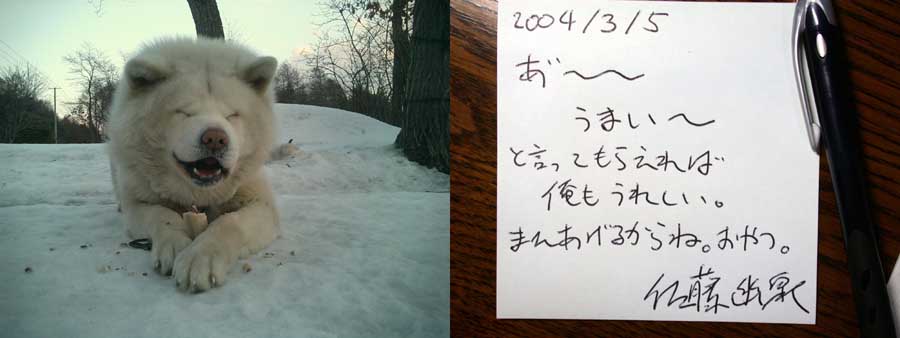 2004/3/5
あ゛〜〜
うまい〜
と言ってもらえれば
俺もうれしい。
またあげるからね。おやつ。
佐藤